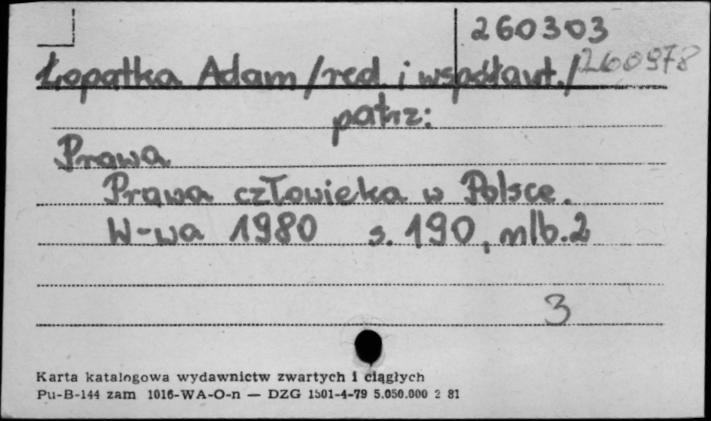 260303
Łopatka Adam /red. i współaut./ 260978
patrz:
Prawa
Prawa człowieka w Polsce.
W-wa 1980 s. 190, nlb. 2
3
Karta katalogowa wydawnictw zwartych i ciągłych
Pu-B-144 zam 1016-WA-O-n — DZG 1501-4-79 5.050.000 2 81